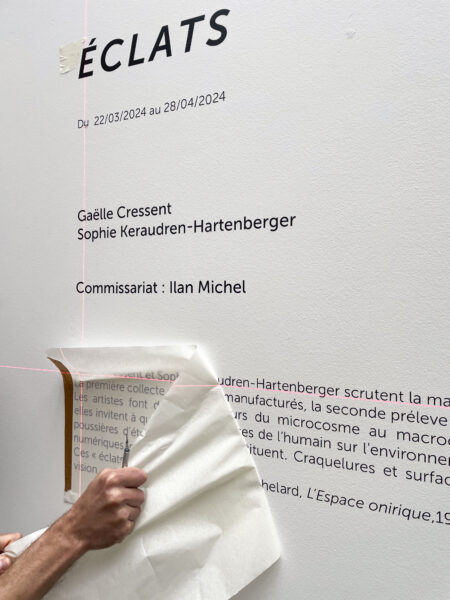 ÉCLATS
Du 22/03/2024 au 28/04/2024
Gaëlle Cressent
Sophie Keraudren-Hartenberger
Commissariat : Ilan Michel
et Sop udren-Hartenberger scrutent la ma
La première collecte manufacturés, la seconde prélève
Les artistes font d urs du microcosme au macroc
elles invitent à qu es de l'humain sur l'environne
poussières d'é ituent. Craquelures et surfac
numériques
Ces « éclats
vision.
helard, L'Espace onirique,19